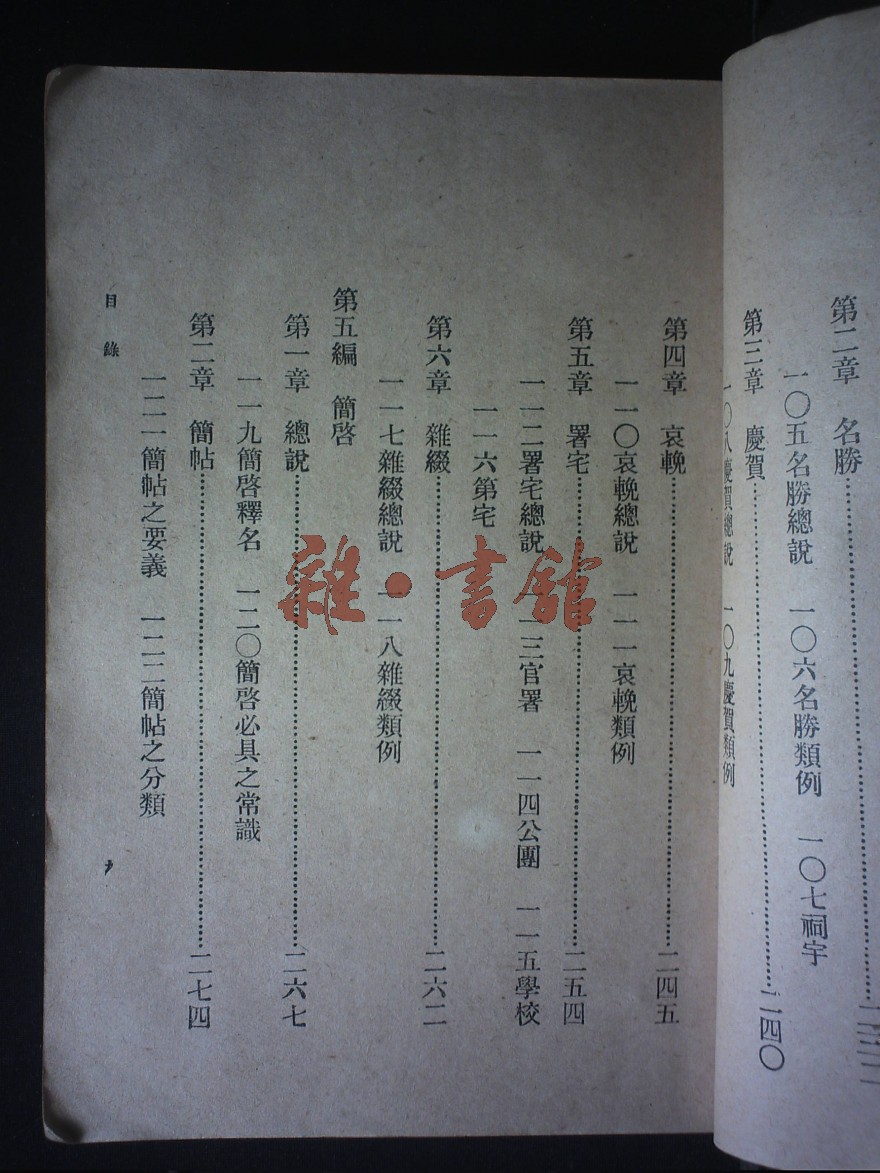 第二章　名勝
一〇五名勝總說　一〇六名勝類例　一〇七祠宇
第三章　慶賀……二四〇
一〇八慶賀總說　一〇九慶賀類例
第四章　哀輓……二四五
一一〇哀輓總說　一一一哀輓類例
第五章　署宅……二五四
一一二署宅總說　一一三官署　一一四公團　一一五學校
一一六第宅
第六章　雜綴……二六二
一一七雜綴總說　一一八雜綴類例
第五編　簡啓
第一章　總說……二六七
一一九簡啓釋名　一二〇簡啓必具之常識
第二章　簡帖……二七四
一二一簡帖之要義　一二二簡帖之分類
目錄
雜·書館